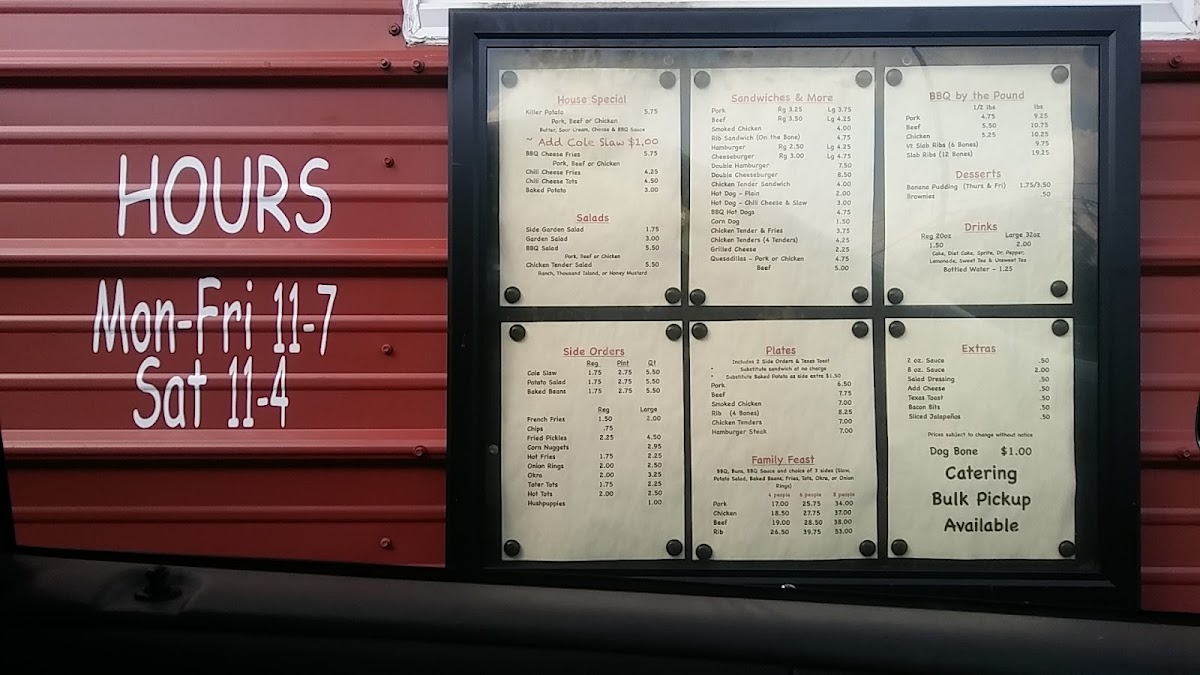 HOURS
Mon-Fri 11-7
Sat 11-4
House Special
Killer Potato 5.75
Pork, Beef or Chicken
Butter, Sour Cream, Cheese & BBQ Sauce
~ Add Cole Slaw $1.00
BBQ Cheese Fries 5.75
Pork, Beef or Chicken
Chili Cheese Fries 4.25
Chili Cheese Tots 4.50
Baked Potato 3.00
Salads
Side Garden Salad 1.75
Garden Salad 3.00
BBQ Salad 5.50
Pork, Beef or Chicken
Chicken Tender Salad 5.50
Ranch, Thousand Island, or Honey Mustard
Sandwiches & More
Pork Rg 3.25 Lg 3.75
Beef Rg 3.50 Lg 4.25
Smoked Chicken 4.00
Rib Sandwich (On the Bone) 4.75
Hamburger Rg 2.50 Lg 4.25
Cheeseburger Rg 3.00 Lg 4.75
Double Hamburger 7.50
Double Cheeseburger 8.50
Chicken Tender Sandwich 4.00
Hot Dog - Plain 2.00
Hot Dog - Chili Cheese & Slaw 3.00
BBQ Hot Dogs 4.75
Corn Dog 1.50
Chicken Tender & Fries 3.75
Chicken Tenders (4 Tenders) 4.25
Grilled Cheese 2.25
Quesadillas - Pork or Chicken 4.75
Beef 5.00
BBQ by the Pound
1/2 lbs lbs
Pork 4.75 9.25
Beef 5.50 10.75
Chicken 5.25 10.25
1/2 Slab Ribs (6 Bones) 9.75
Slab Ribs (12 Bones) 19.25
Desserts
Banana Pudding (Thurs & Fri) 1.75/3.50
Brownies .50
Drinks
Reg 20oz Large 32oz
1.50 2.00
Coke, Diet Coke, Sprite, Dr. Pepper,
Lemonade, Sweet Tea & Unsweet Tea
Bottled Water - 1.25
Side Orders
Reg Pint Qt
Cole Slaw 1.75 2.75 5.50
Potato Salad 1.75 2.75 5.50
Baked Beans 1.75 2.75 5.50
Reg Large
French Fries 1.50 2.00
Chips .75
Fried Pickles 2.25 4.50
Corn Nuggets 2.95
Hot Fries 1.75 2.25
Onion Rings 2.00 2.50
Okra 2.00 3.25
Tater Tots 1.75 2.25
Hot Tots 2.00 2.50
Hushpuppies 1.00
Plates
Includes 2 Side Orders & Texas Toast
• Substitute sandwich at no charge
• Substitute Baked Potato as side extra $1.50
Pork 6.50
Beef 7.75
Smoked Chicken 7.00
Rib (4 Bones) 8.25
Chicken Tenders 7.00
Hamburger Steak 7.00
Family Feast
BBQ, Buns, BBQ Sauce and choice of 3 sides (Slaw,
Potato Salad, Baked Beans, Fries, Tots, Okra, or Onion
Rings)
4 people 6 people 8 people
Pork 17.00 25.75 34.00
Chicken 18.50 27.75 37.00
Beef 19.00 28.50 38.00
Rib 26.50 39.75 53.00
Extras
2 oz. Sauce .50
8 oz. Sauce 2.00
Salad Dressing .50
Add Cheese .50
Texas Toast .50
Bacon Bits .50
Sliced Jalapeños .50
Prices subject to change without notice
Dog Bone $1.00
Catering
Bulk Pickup
Available